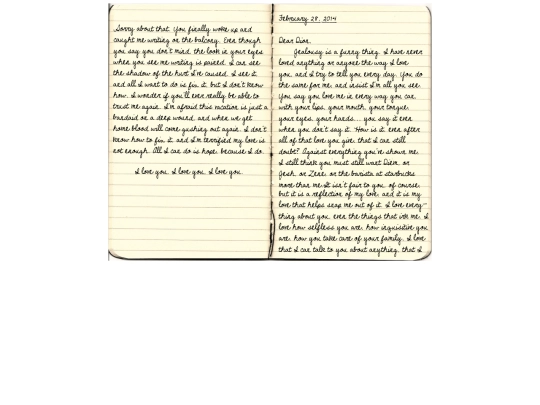 Sorry about that. You finally woke up and
caught me writing on the balcony. Even though
you say you don't mind, the look in your eyes
when you see me writing is pained. I can see
the shadow of the hurt I've caused. I see it
and all I want to do is fix it, but I don't know
how. I wonder if you'll ever really be able to
trust me again. I'm afraid this vacation is just a
bandaid on a deep wound, and when we get
home blood will come gushing out again. I don't
know how to fix it, and I'm terrified my love is
not enough. All I can do is hope, because I do.
I love you. I love you. I love you.
February 28, 2014
Dear Dior,
Jealousy is a funny thing. I have never
loved anything or anyone the way I love
you, and I try to tell you every day. You do
the same for me, and insist I'm all you see.
You say you love me in every way you can,
with your lips, your mouth, your tongue,
your eyes, your hands... you say it even
when you don't say it. How is it, even after
all of that love you give, that I can still
doubt? Against everything you've shown me,
I still think you must still want Diem, or
Josh, or Zene, or the barista at starbucks
more than me. It isn't fair to you, of course,
but it is a reflection of my love, and it is my
love that helps snap me out of it. I love every-
thing about you, even the things that irk me. I
love how selfless you are, how inquisitive you
are, how you take care of your family. I love
that I can talk to you about anything, that I